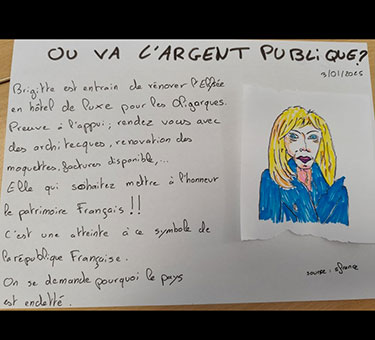 OU VA L'ARGENT PUBLIQUE?
3/01/2025
Brigitte est entrain de rénover l'Elysée
en hôtel de luxe pour les Oligarques.
Preuve à l'appui ; rendez vous avec
des architecques, renovation des
moquettes, factures disponible,...
Elle qui souhaitez mettre à l'honneur
le patrimoine Français !!
C'est une atteinte à ce symbole de
la république Française.
On se demande pourquoi le pays
est endetté.
source :